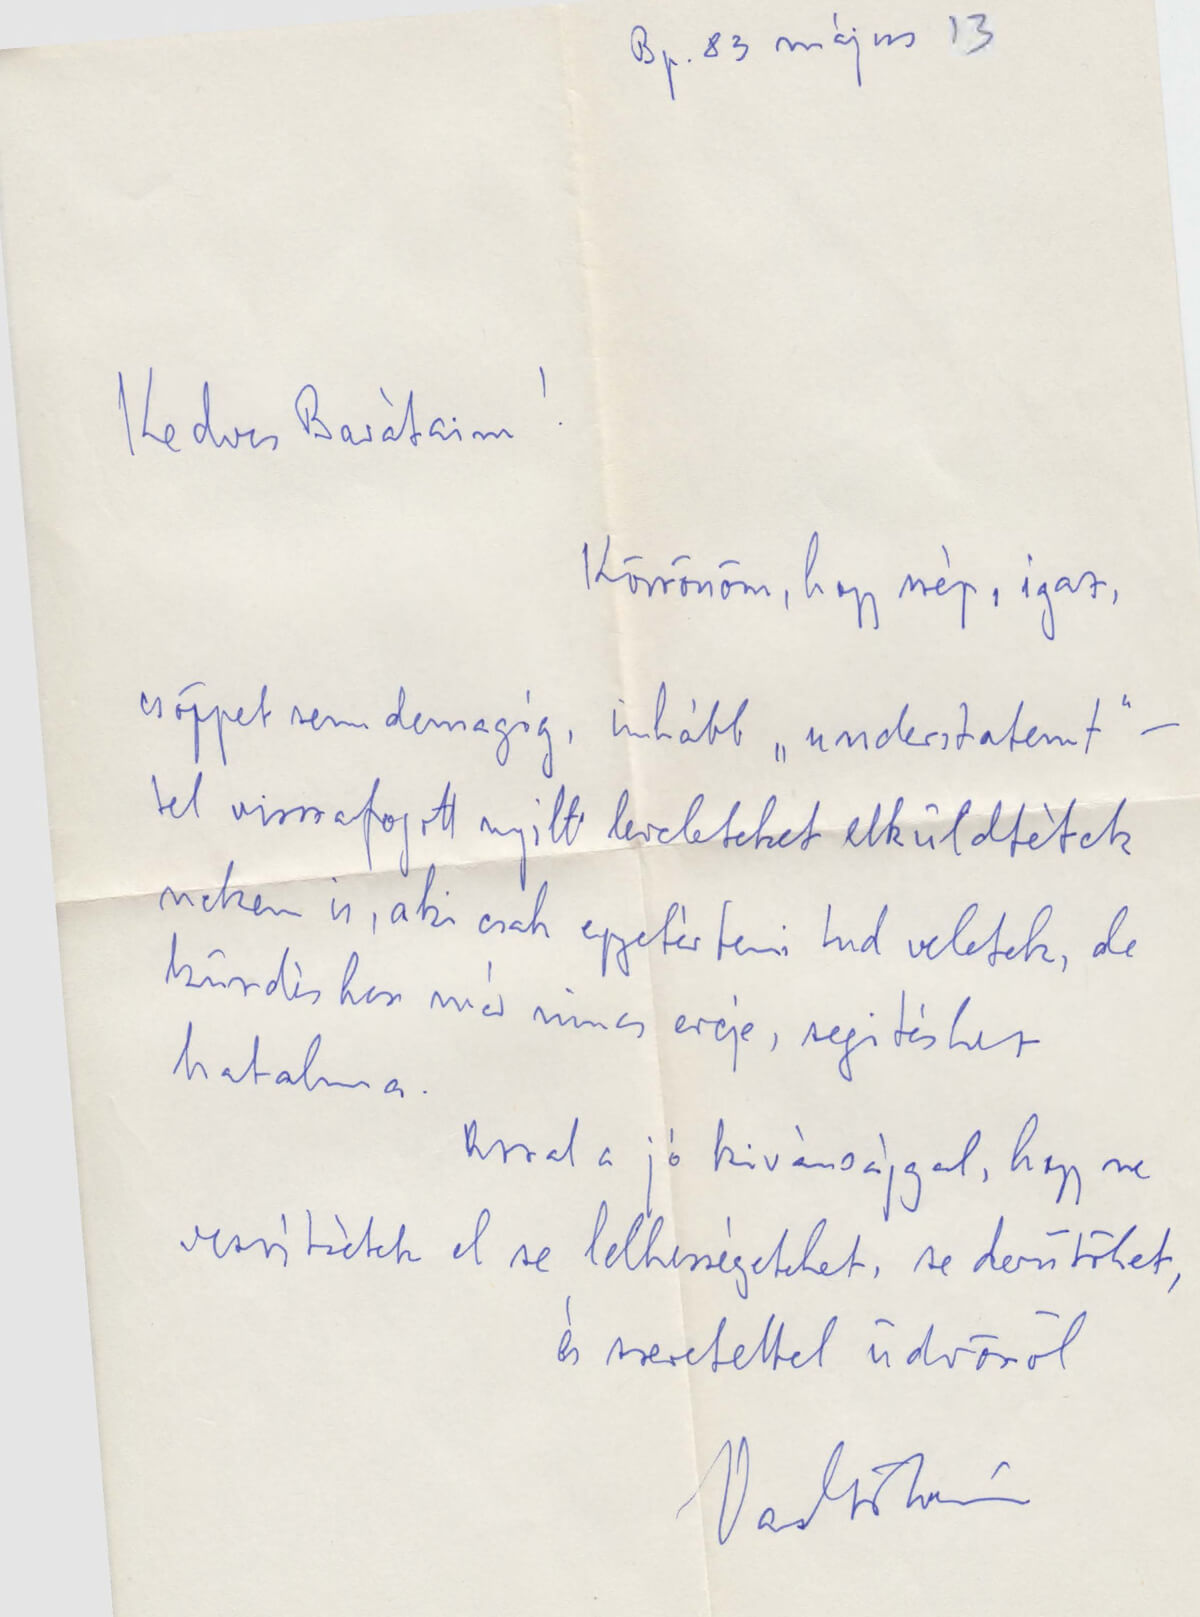 Bp. 83 május 13
Kedves Barátaim!
Köszönöm, hogy szép, igaz,
csöppet sem demagóg, inkább „understatemt"-
tel visszafogott nyílt leveleteket elküldtétek
nekem is, aki csak egyetérteni tud veletek, de
küzdéshez már nincs ereje, segítéshez
hatalma.
Azzal a jó kivánsággal, hogy ne
veszítsétek el se lelkességeteket, se derűtöket,
és szeretettel üdvözöl
Vas István